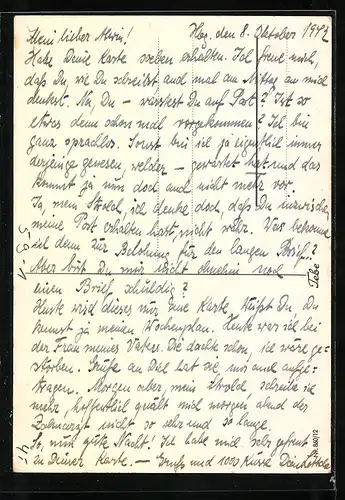 Mein lieber
Hof, den 8. Oktober 1942
Habe Deine Karte soeben erhalten. Ich freue mich,
daß Du wie Du schreibst auch mal am Mittag an mich
denkst. Na, Du – wartest Du auf Post? Ist so
etwas denn schon mal vorgekommen? Ich bin
ganz sprachlos. Sonst bin ich ja eigentlich immer
derjenige gewesen welcher – gewartet hat und das
kommt ja nun doch auch nicht mehr vor.
Ja, mein ich denke doch, daß Du inzwischen
meine Post erhalten hast, nicht wahr. Was bekomme
ich denn zur Belohnung für den langen Brief?
Aber bist Du mir nicht ohnehin noch
einen Brief schuldig?
Heute wird dieses nur eine Karte. Weißt Du, Du
kennst ja meinen Wochenplan. Heute war ich bei
der Frau meines Vaters. Die dachte schon, ich wäre ge-
storben. Grüße an Dich hat sie mir auch aufge-
tragen. Morgen aber, mein schreibe ich
mehr, hoffentlich quält mich morgen abend der
Zahnarzt nicht so sehr und so lange.
So, nun gute Nacht! Ich habe mich sehr gefreut
zu Deiner Karte. – Gruß und 1000 Küsse